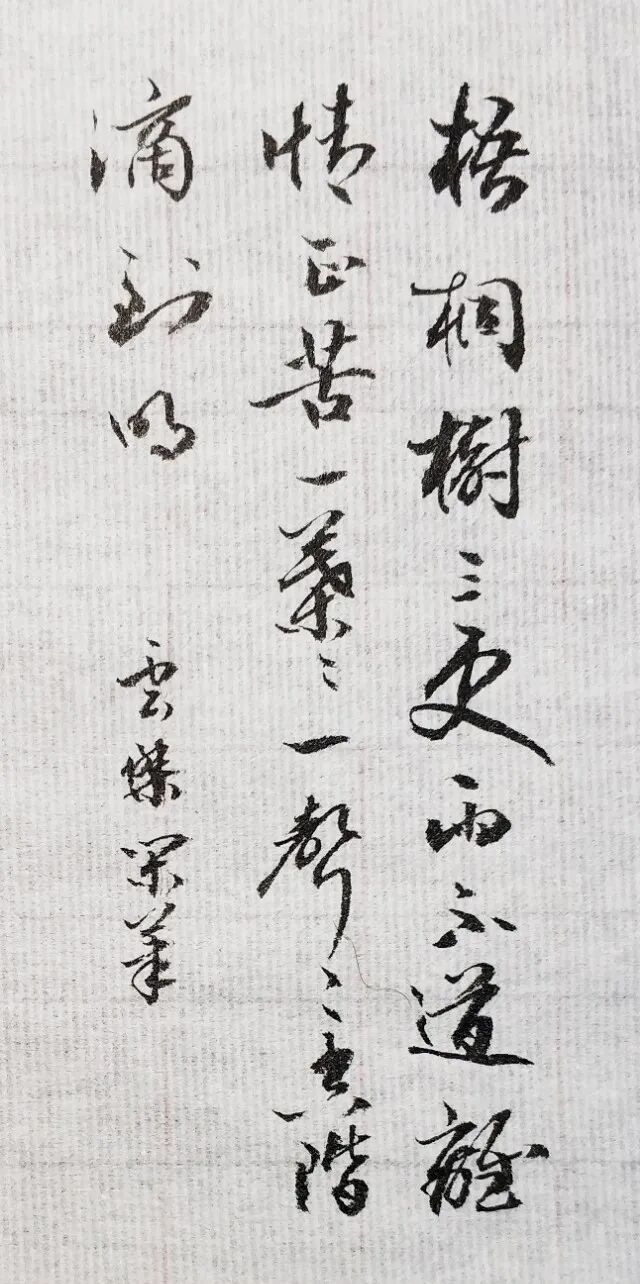 梧桐樹三更雨不道離
情正苦一葉〻一聲〻空階
滴到明
雲閑筆